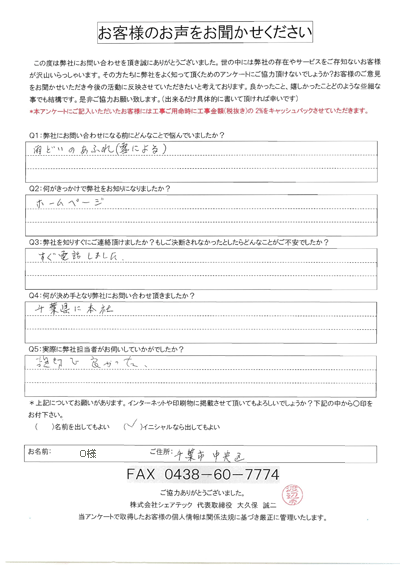 お客様のお声をお聞かせください
この度は弊社にお問い合わせを頂き誠にありがとうございました。世の中には弊社の存在やサービスをご存知ないお客様
が沢山いらっしゃいます。その方たちに弊社をよく知って頂くためのアンケートにご協力頂けないでしょうか?お客様のご意見
をお聞かせいただき今後の活動に反映させていただきたいと考えております。良かったこと、嬉しかったことどのような些細な
事でも結構です。是非ご協力お願い致します。(出来るだけ具体的に書いて頂ければ幸いです)
*本アンケートにご記入いただいたお客様には工事ご用命時に工事金額(税抜き)の2%をキャッシュバックさせていただきます。
Q1:弊社にお問い合わせになる前にどんなことで悩んでいましたか?
雨どいのあふれ(雪による)
Q2:何がきっかけで弊社をお知りになりましたか?
ホームページ
Q3:弊社を知りすぐにご連絡頂けましたか?もしご決断されなかったとしたらどんなことがご不安でしたか?
すぐ電話しました。
Q4:何が決め手となり弊社にお問い合わせ頂きましたか?
千葉県に本社
Q5:実際に弊社担当者がお伺いしていかがでしたか?
親切で良かった。
*上記についてお願いがあります。インターネットや印刷物に掲載させて頂いてもよろしいでしょうか?下記の中から○印を
お付け下さい。
( )名前を出してもよい (✓)イニシャルなら出してもよい
お名前: O様 ご住所: 千葉市中央区
FAX 0438-60-7774
ご協力ありがとうございました。
株式会社シェアテック 代表取締役 大久保 誠二
当アンケートで取得したお客様の個人情報は関係法規に基づき厳正に管理いたします。